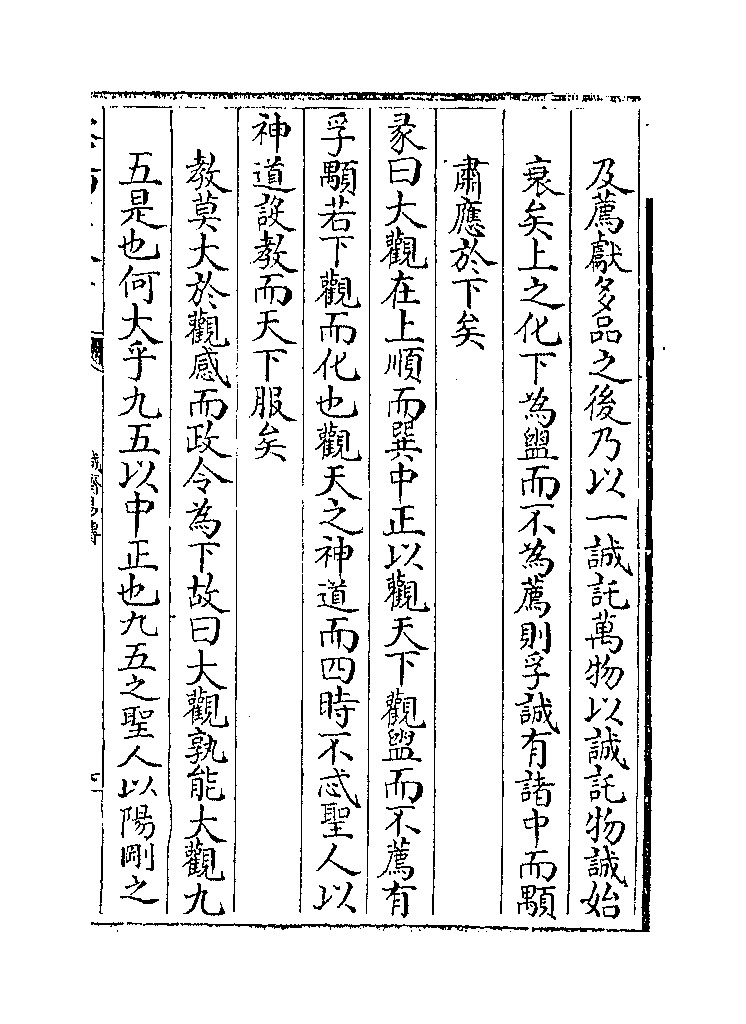 及薦獻多品之後乃以一誠託萬物以誠託物誠始
衰矣上之化下為盥而不為薦則孚誠有諸中而顒
肅應於下矣
彖曰大觀在上順而巽中正以觀天下觀盥而不薦有
孚顒若下觀而化也觀天之神道而四時不忒聖人以
神道設教而天下服矣
教莫大於觀感而政令為下故曰大觀孰能大觀九
五是也何大乎九五以中正也九五之聖人以陽剛之
誠齋易傳